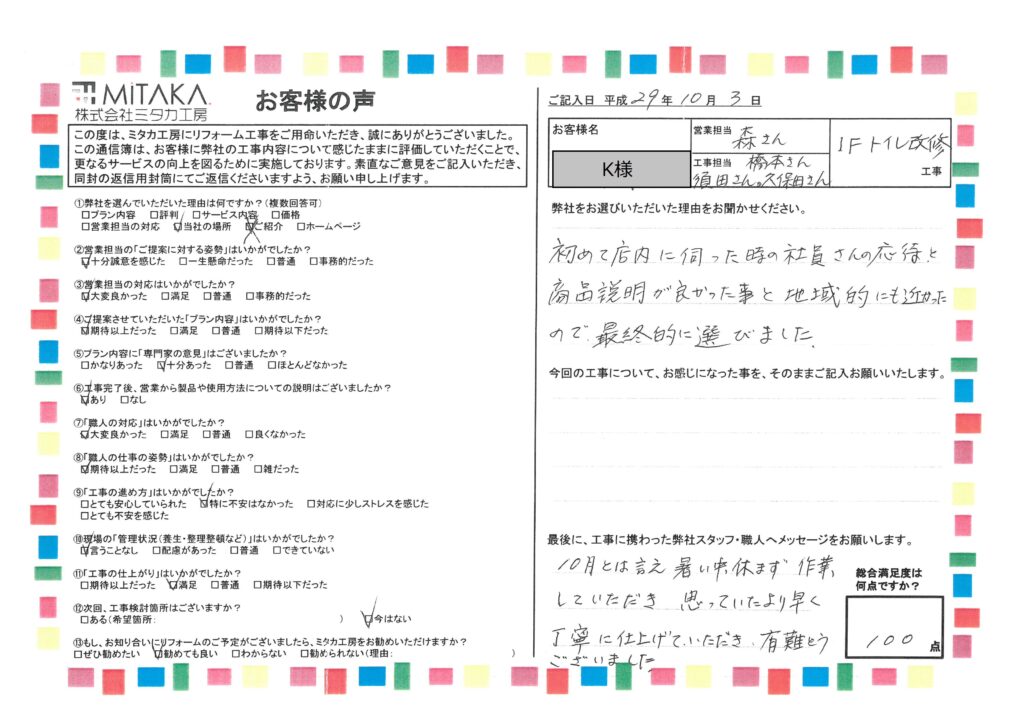 MiTAKA
株式会社ミタカ工房
お客様の声
この度は、ミタカ工房にリフォーム工事をご用命いただき、誠にありがとうございました。
この通信簿は、お客様に弊社の工事内容について感じたままに評価していただくことで、
更なるサービスの向上を図るために実施しております。素直なご意見をご記入いただき、
同封の返信用封筒にてご返信くださいますよう、お願い申し上げます。
①弊社を選んでいただいた理由は何ですか?(複数回答可)
□プラン内容 □評判 □サービス内容 □価格
□営業担当の対応 ☑当社の場所 ☑ご紹介 □ホームページ
②営業担当の「ご提案に対する姿勢」はいかがでしたか?
☑十分誠意を感じた □一生懸命だった □普通 □事務的だった
③営業担当の対応はいかがでしたか?
☑大変良かった □満足 □普通 □事務的だった
④ご提案させていただいた「プラン内容」はいかがでしたか?
☑期待以上だった □満足 □普通 □期待以下だった
⑤プラン内容に「専門家の意見」はございましたか?
□かなりあった ☑十分あった □普通 □ほとんどなかった
⑥工事完了後、営業から製品や使用方法についての説明はございましたか?
☑あり □なし
⑦「職人の対応」はいかがでしたか?
☑大変良かった □満足 □普通 □良くなかった
⑧「職人の仕事の姿勢」はいかがでしたか?
☑期待以上だった □満足 □普通 □雑だった
⑨「工事の進め方」はいかがでしたか?
□とても安心していられた ☑特に不安はなかった □対応に少しストレスを感じた
□とても不安を感じた
⑩現場の「管理状況(養生・整理整頓など)」はいかがでしたか?
☑言うことなし □配慮があった □普通 □できていない
⑪「工事の仕上がり」はいかがでしたか?
□期待以上だった ☑満足 □普通 □期待以下だった
⑫次回、工事検討箇所はございますか?
□ある(希望箇所: ) ☑今はない
⑬もし、お知り合いにリフォームのご予定がございましたら、ミタカ工房をお勧めいただけますか?
□ぜひ勧めたい ☑勧めても良い □わからない □勧められない(理由: )
ご記入日 平成 29年 10月 3日
お客様名
K様
営業担当 森さん
工事担当 橋本さん
須田さん。久保田さん
1Fトイレ改修
工事
弊社をお選びいただいた理由をお聞かせください。
初めて店内に伺った時の社員さんの応待と
商品説明が良かった事と地域的にも近かった
ので最終的に選びました。
今回の工事について、お感じになった事を、そのままご記入お願いいたします。
最後に、工事に携わった弊社スタッフ・職人へメッセージをお願いします。
10月とは言え暑い中休まず作業
していただき 思っていたより早く
丁寧に仕上げていただき、有難とう
ございました
総合満足度は
何点ですか?
100点